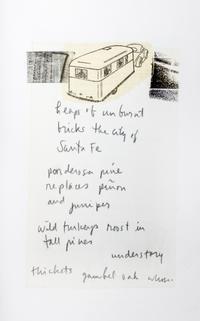 heaps of unburnt
bricks the city of
Santa Fe
ponderosa pine
replaces piñon
and juniper
wild turkeys roost in
tall pines
understory
thickets gambel oak where